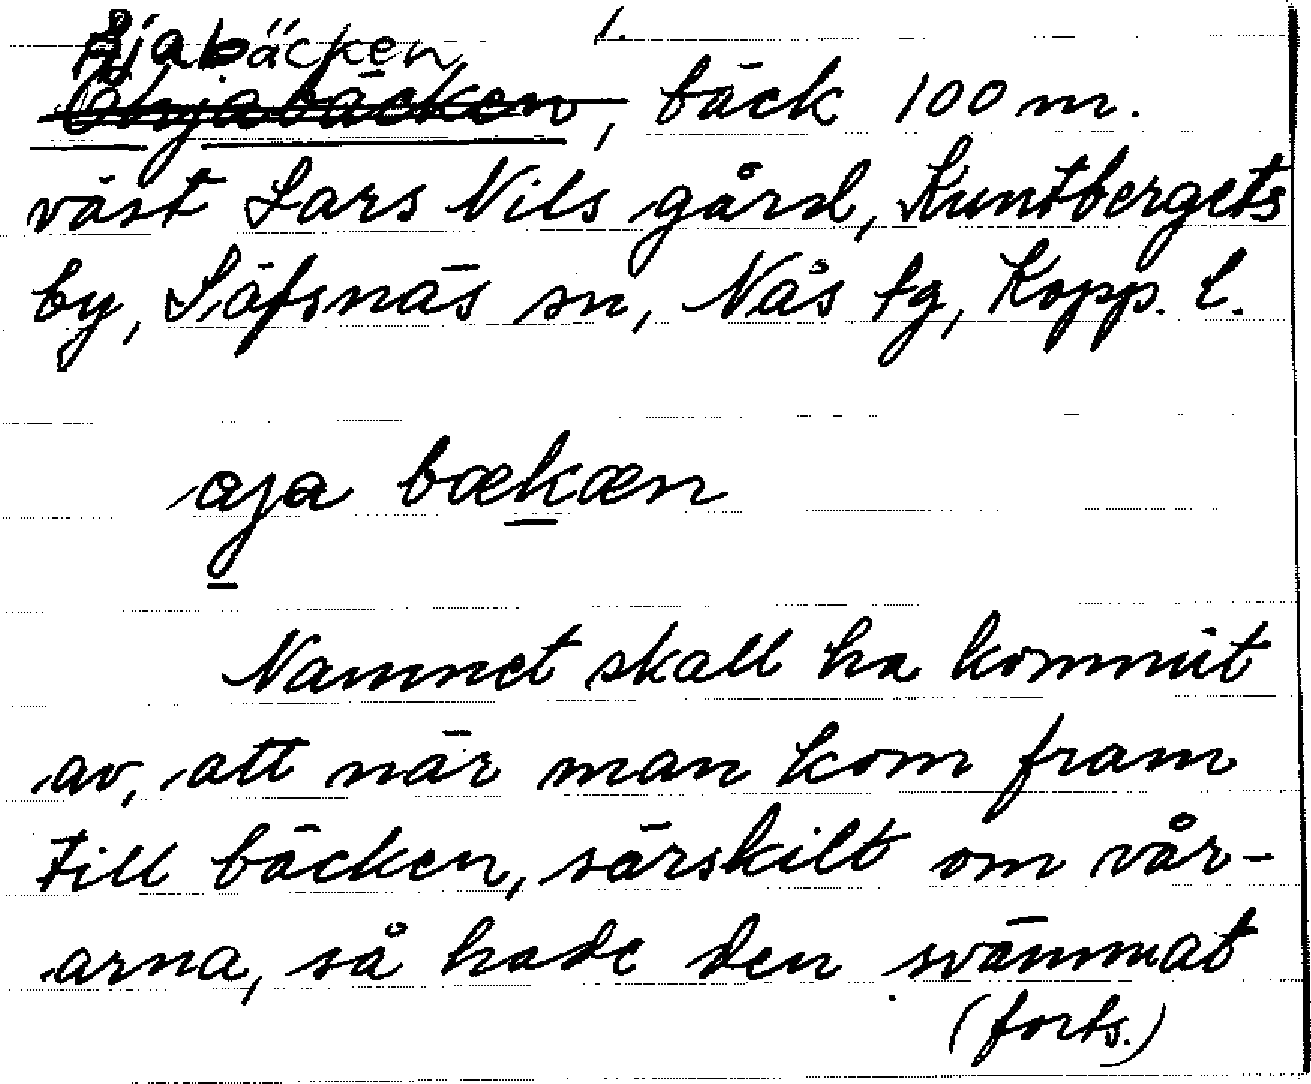 Ajabäcken 1.
bäck 100 m.
väst Lars Nils gård, Kuntbergets
by, Säfsnäs sn, Nås tg, Kopp. l.
aja bækæn
Namnet skall ha kommit
av, att när man kom fram
till bäcken, särskilt om vår-
arna, så hade den svämmat
(forts.)